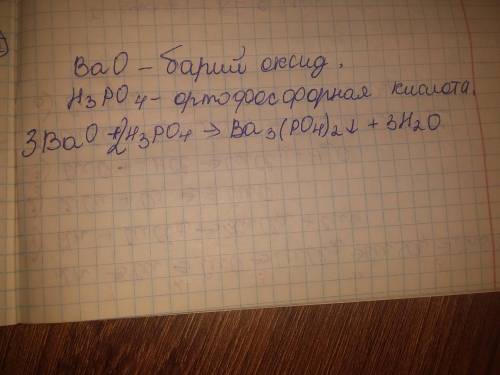 BaO - барий оксид.
H3PO4 - ортофосфорная кислота.
3BaO + 2H3PO4 → Ba3(PO4)2↓ + 3H2O